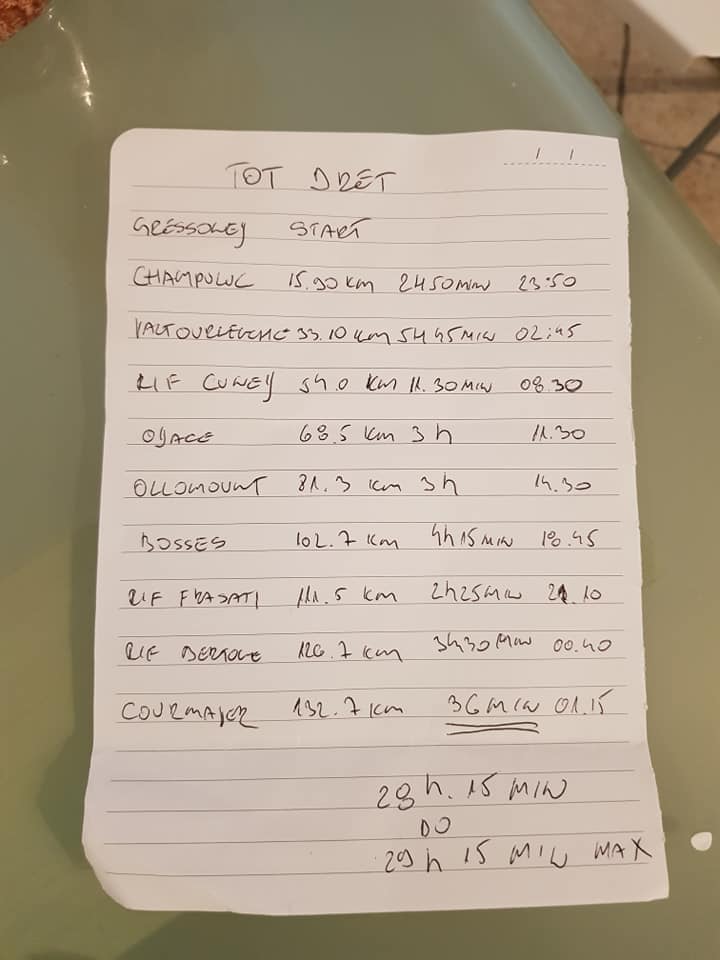 TOT DRET
GRESSONEY START
CHAMPOLUC 15.90 KM 2450MIN 23:50
VALTOURLENCHE 33.10 KM 5H45MIN 02:45
RIF CUNEY 54.0 KM 11.30MIN 08.30
OYACE 68.5 KM 3h 11.30
OLLOMOUNT 81.3 KM 3h 14.30
BOSSES 102.7 KM 4h15MIN 18.45
RIF FRASATI 111.5 KM 2h25MIN 21.10
RIF BERTONE 126.7 KM 3h30MIN 00.40
COURMAJER 132.7 KM 36MIN 01.15
28h. 15 MIN
DO
29h 15 MIN MAX